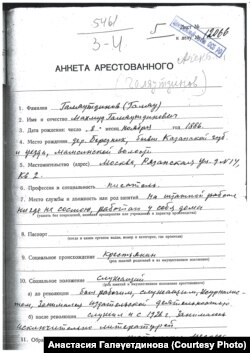 5461
3-4
5
12066
АНКЕТА АРЕСТОВАННОГО
(Галяутдинов)
1. Фамилия Галяутдинов (Галяу)
2. Имя и отчество Махмуд Галяутдинович
3. Дата рождения: число „8“ месяц ноября год 1886.
4. Место рождения дер. Казанской губ.
и уезда, волости
5. Местожительство (адрес) Москва, Рязанская ул. д №14,
кв 2.
6. Профессия и специальность писатель
7. Место службы и должность или род занятий На штатной работе
нигде не состоял, работал у себя дома
8. Паспорт
9. Социальное происхождение Крестьянин
10. Социальное положение Служащий
а) до революции был рабочим, служащим,
занимался деятельностью
б) после революции служил и с 1928 г. занимался
исключительно литературой
Анастасия Галеутдинова (Courtesy Photo)